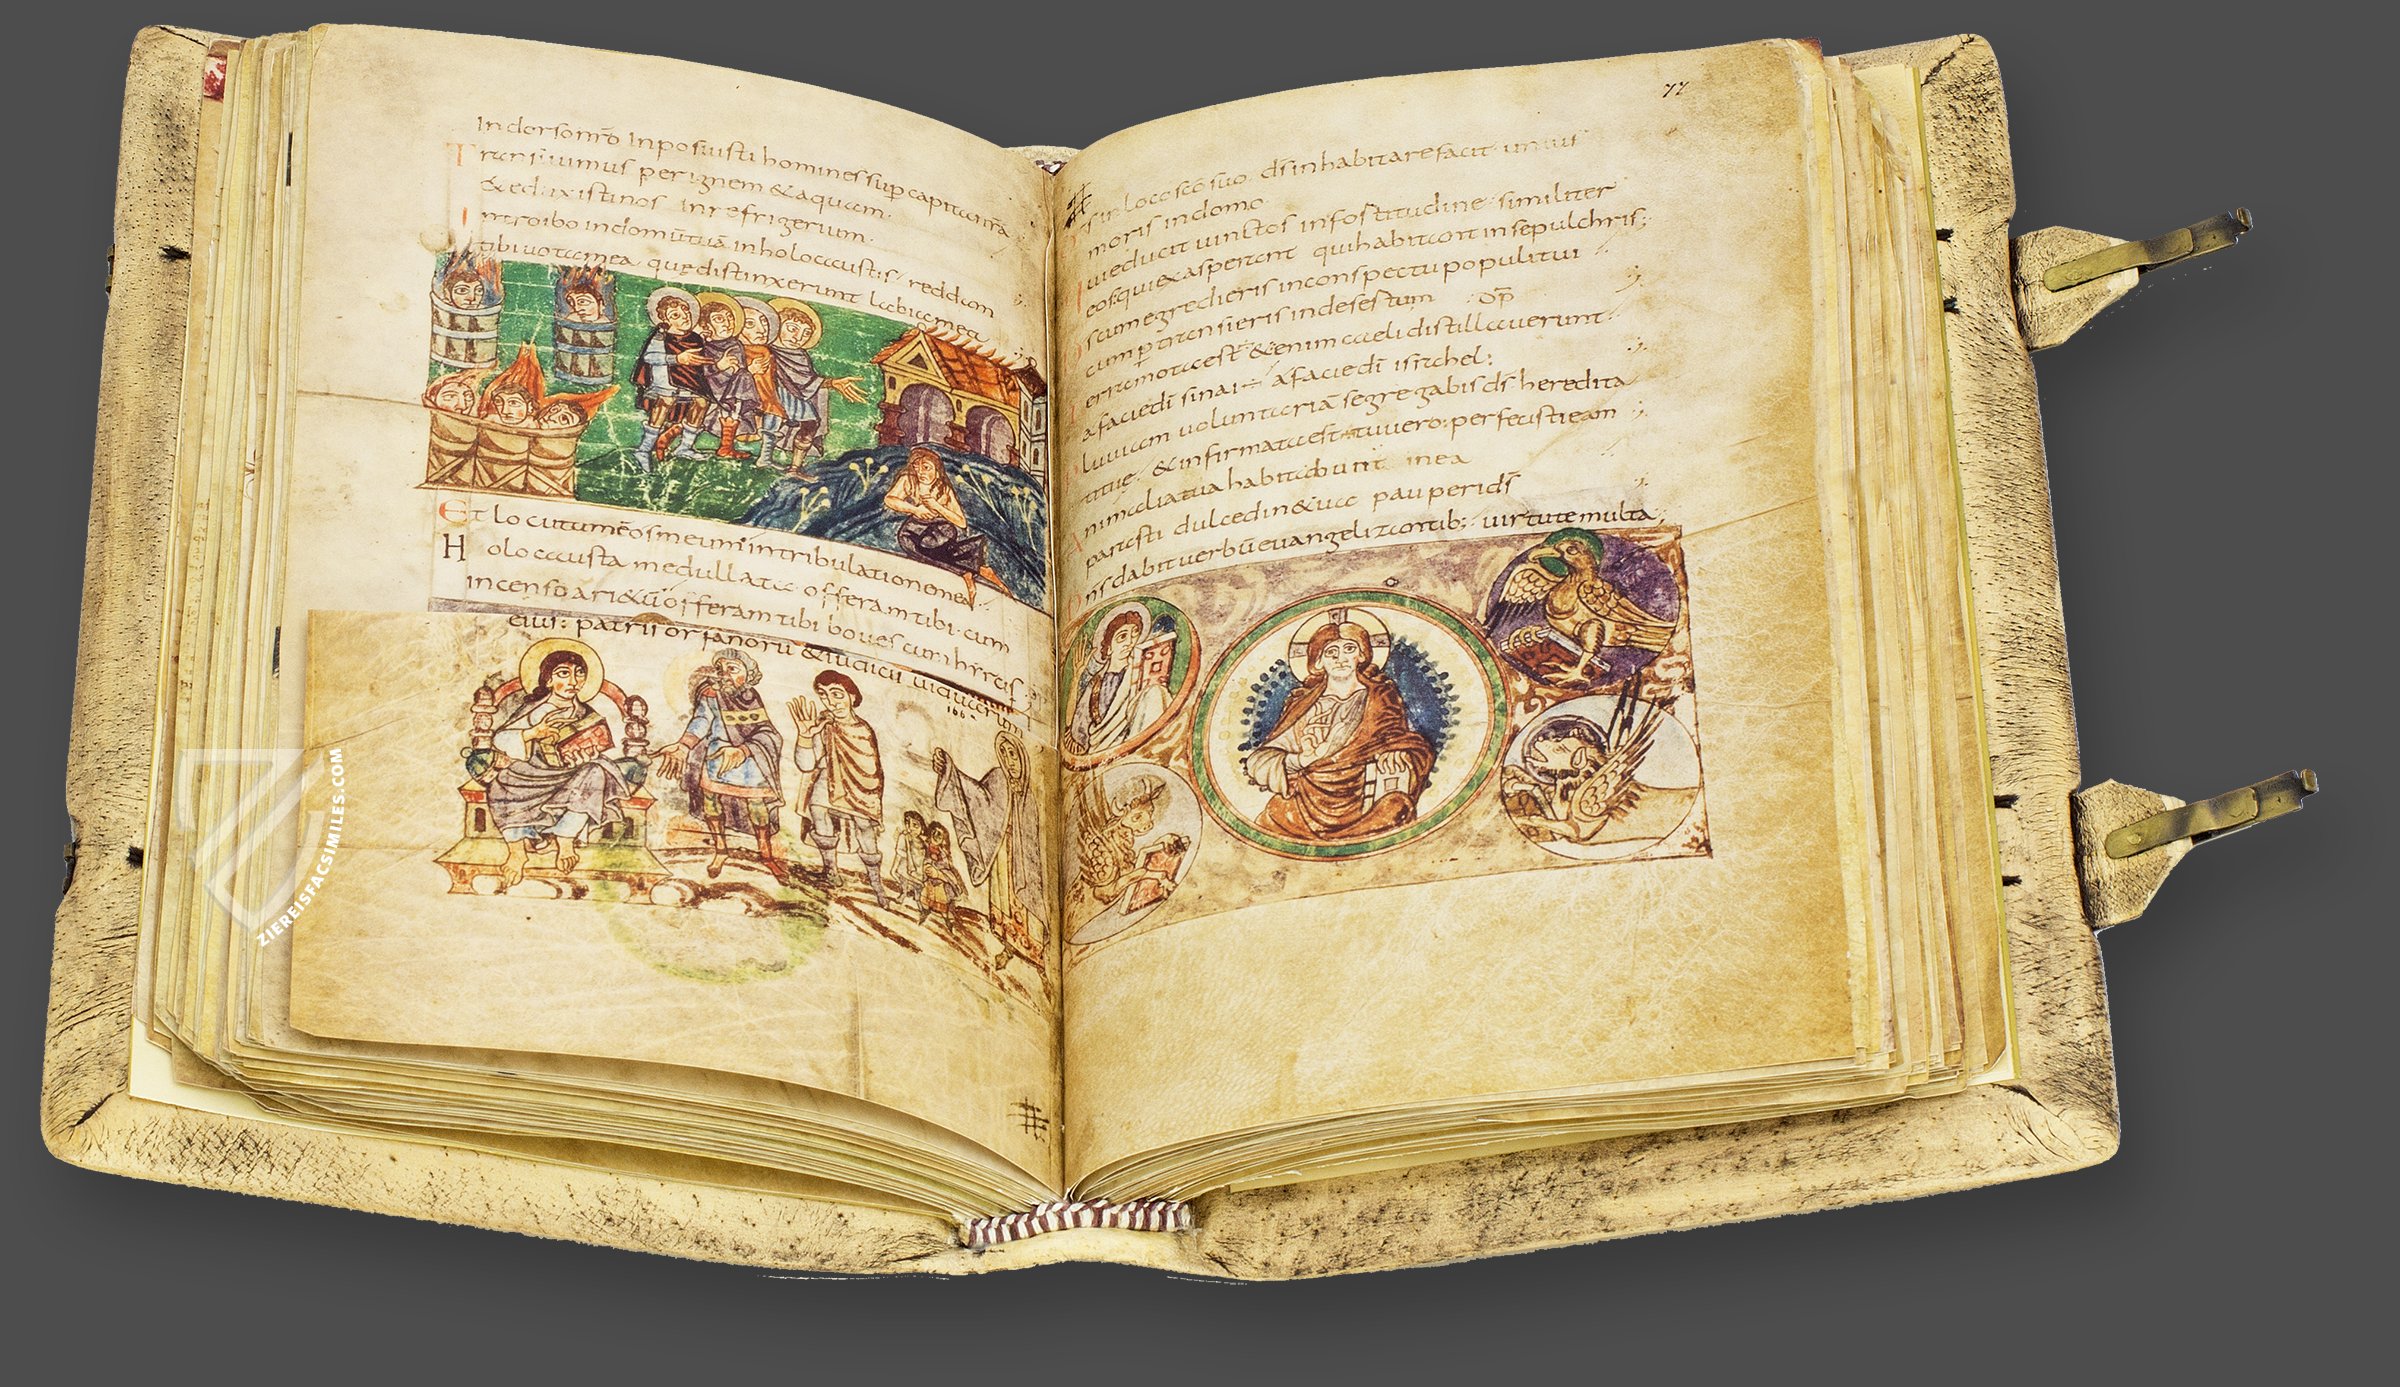 In dorso nr̄o Inposuisti homines sup capita nr̄a
Transiuimus per ignem & aquam.
& eduxisti nos In refrigerium.
Introibo in domū tuā in holocaustis / reddam
tibi uota mea quę distinxerunt labia mea
Et locutum ē os meum in tribulatione mea.
Holocausta medullata offeram tibi cum
incenso ari&ū offeram tibi boues cum hyrcis
eius: patris orfanorū & iudicis uiduarum
166
77
in loco scō suo ds̄ inhabitare facit unius
moris in domo
ui educit uinctos in fortitudine similiter
eos qui exasperant qui habitant in sepulchris;
s cum egredieris in conspectu populi tui
cum ptransieris in desertum
erra mota est & enim caeli distillauerunt
a facie dī sinai a facie dī israhel;
luuiam uoluntariā segregabis ds̄ heredita
tituę & infirmata est tu uero perfecisti eam
nimalia tua habitabunt in ea
parasti dulcedin& ua pauperi ds̄
ns dabit uerbū euangelizantib; uirtute multa;
ZIEREISFACSIMILES.COM